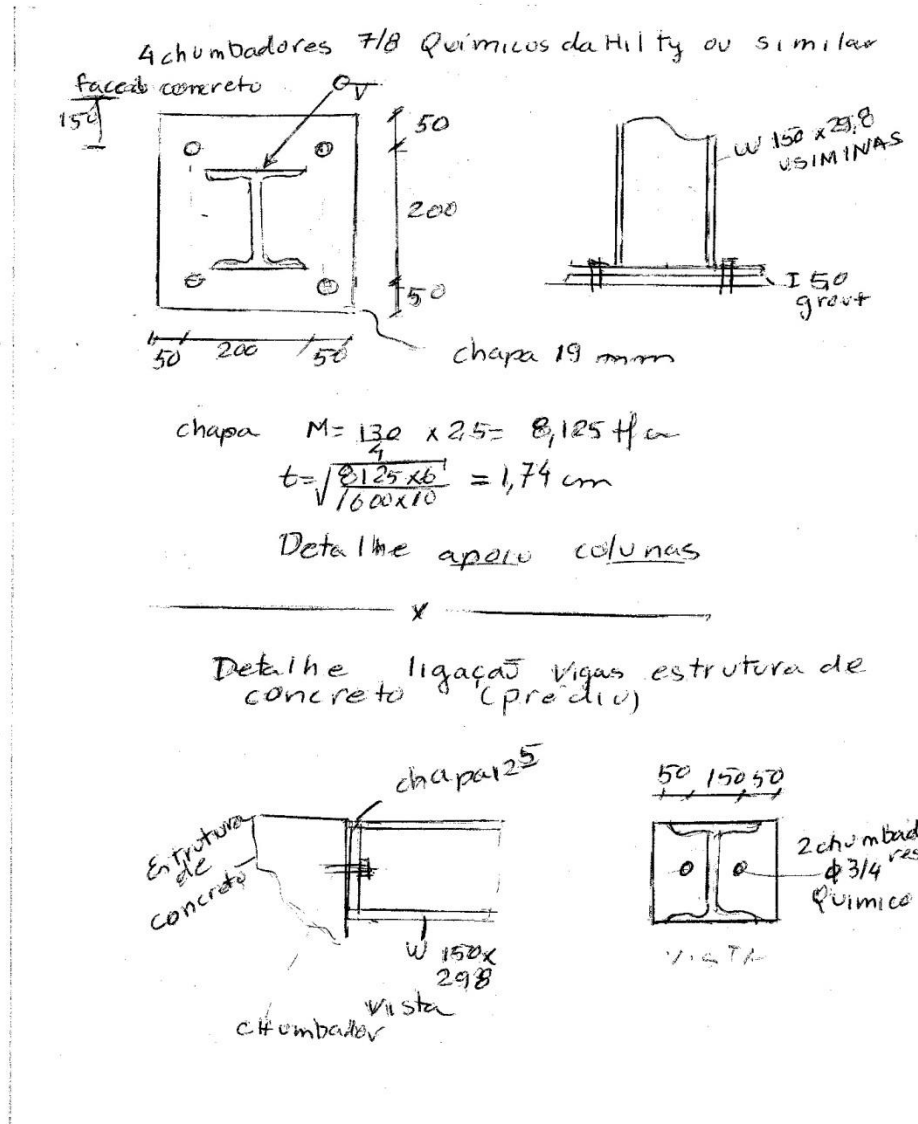 4 chumbadores 7/8 Químicos da Hilty ou similar
face do concreto
150
50
200
50
50 200 50
chapa 19 mm
W 150 x 29,8
USIMINAS
I 50
grout
chapa M= 130/4 x 2,5= 8,125 tf cm
t= √8125x6/1600x10 = 1,74 cm
Detalhe apoio colunas
x
Detalhe ligação vigas estrutura de
concreto (prédio)
chapa 12 5
Estrutura
de
concreto
W 150x
298
Vista
CHumbador
50 150 50
2 chumbadores
ϕ 3/4
Químico
VISTA